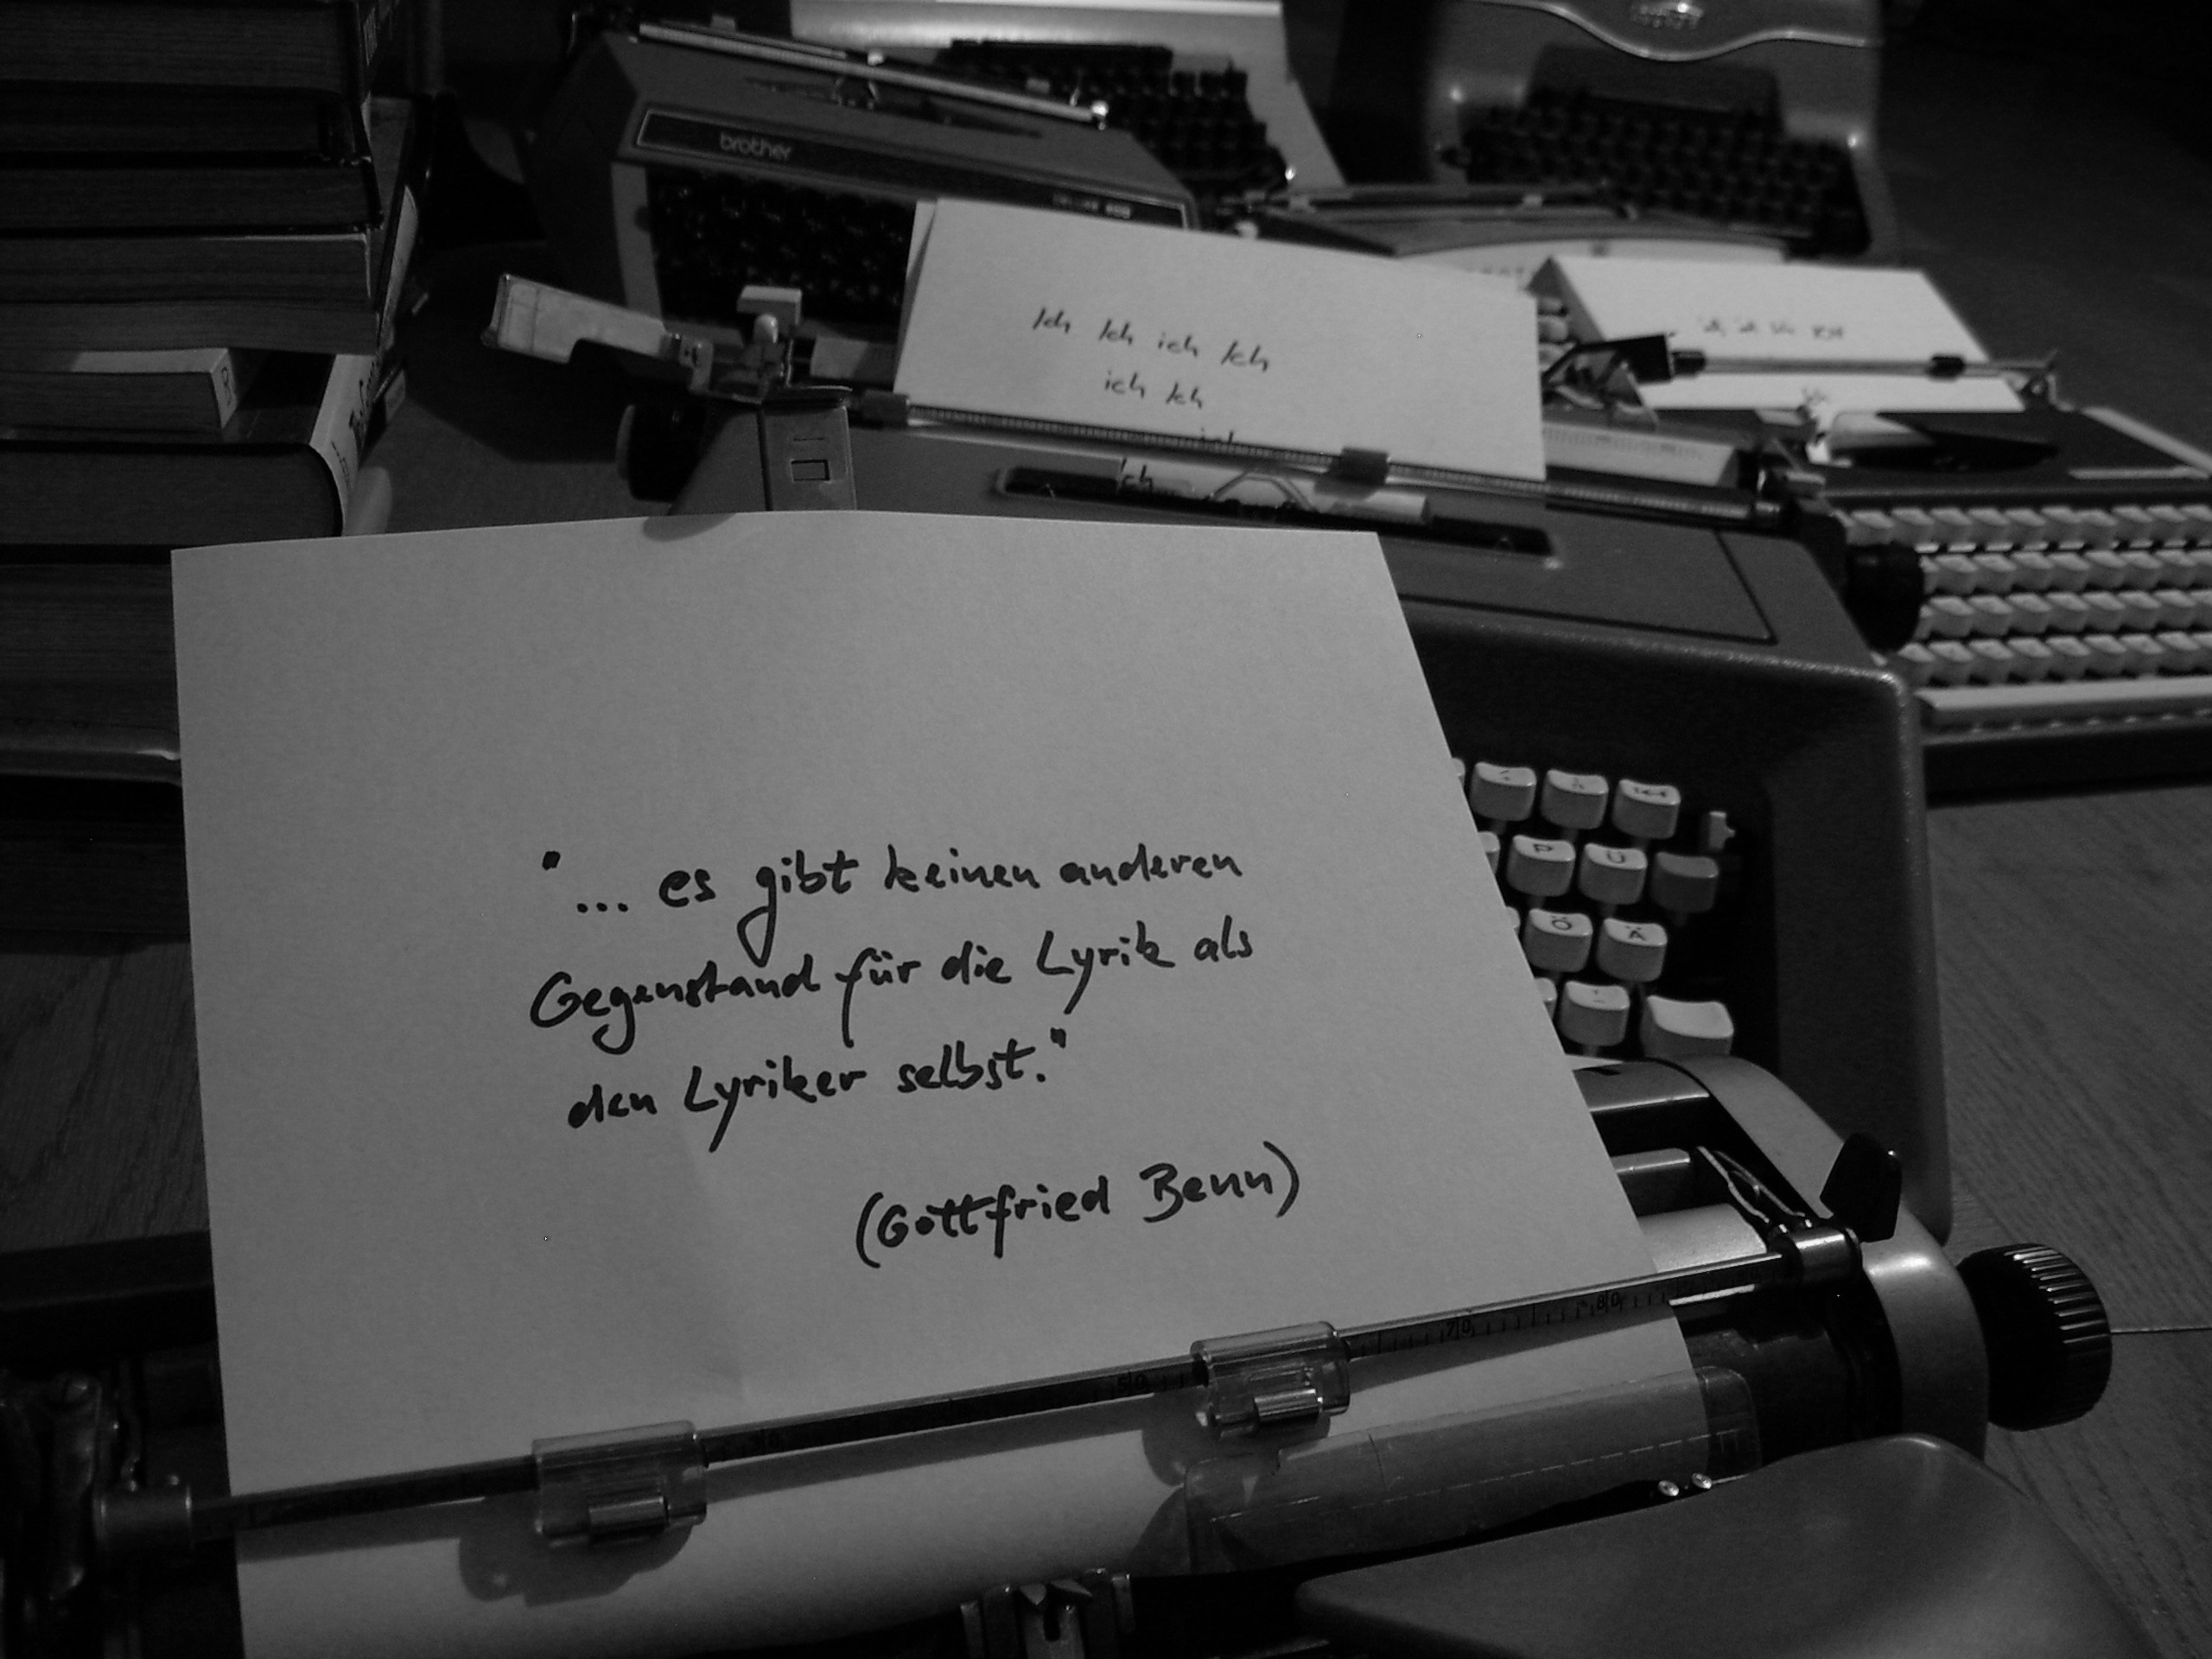 brother
Ich Ich ich Ich
ich Ich
ich
"... es gibt keinen anderen
Gegenstand für die Lyrik als
den Lyriker selbst."
(Gottfried Benn)
P Ü
Ö Ä
50 70 80